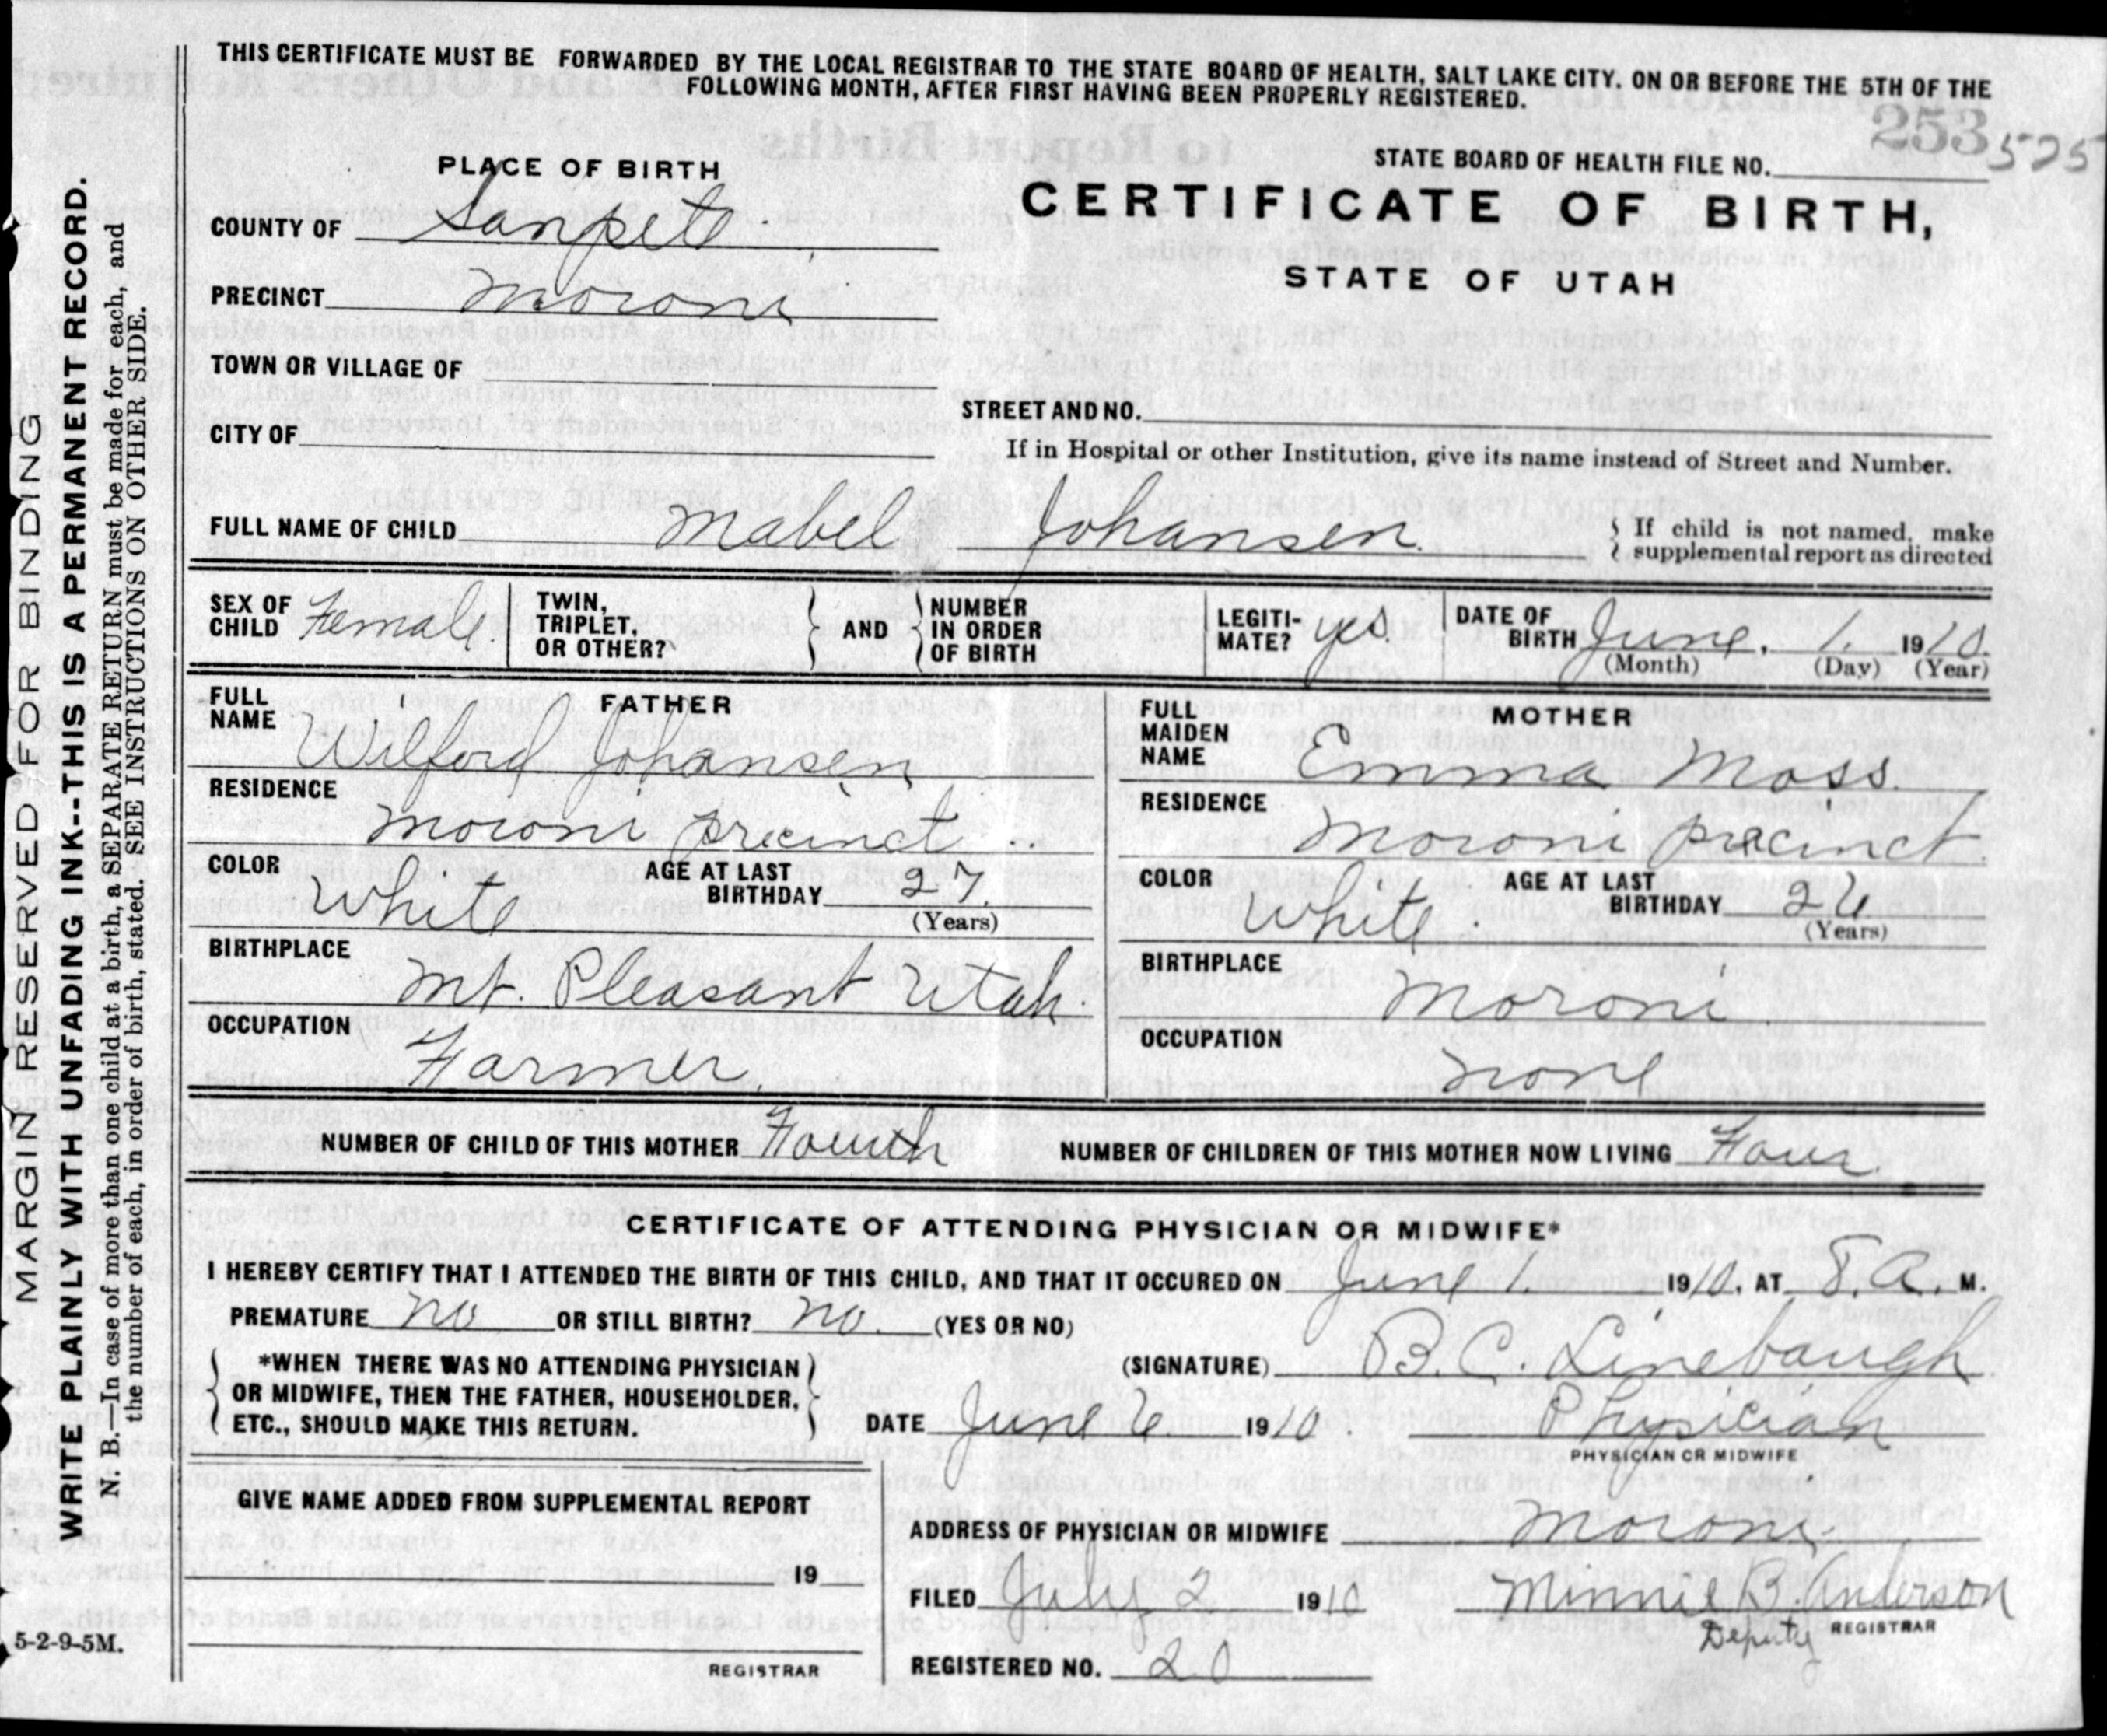 THIS CERTIFICATE MUST BE FORWARDED BY THE LOCAL REGISTRAR TO THE STATE BOARD OF HEALTH, SALT LAKE CITY, ON OR BEFORE THE 5TH OF THE
FOLLOWING MONTH, AFTER FIRST HAVING BEEN PROPERLY REGISTERED.
253 525
STATE BOARD OF HEALTH FILE NO.
PLACE OF BIRTH
CERTIFICATE OF BIRTH,
STATE OF UTAH
COUNTY OF Sanpete
PRECINCT Moroni
TOWN OR VILLAGE OF
CITY OF
STREET AND NO.
If in Hospital or other Institution, give its name instead of Street and Number.
FULL NAME OF CHILD Mabel Johansen
{ If child is not named, make
supplemental report as directed
SEX OF CHILD Female.
TWIN, TRIPLET, OR OTHER?
} AND {
NUMBER IN ORDER OF BIRTH
LEGITI-MATE? yes.
DATE OF BIRTH June, 1. 1910.
(Month) (Day) (Year)
FATHER
FULL NAME Wilford Johansen
RESIDENCE
Moroni precinct
COLOR White
AGE AT LAST BIRTHDAY 27.
(Years)
BIRTHPLACE
Mt. Pleasant Utah.
OCCUPATION
Farmer.
MOTHER
FULL MAIDEN NAME Emma Moss.
RESIDENCE
Moroni precinct
COLOR White.
AGE AT LAST BIRTHDAY 26
(Years)
BIRTHPLACE
Moroni
OCCUPATION
none
NUMBER OF CHILD OF THIS MOTHER Fourth NUMBER OF CHILDREN OF THIS MOTHER NOW LIVING Four
CERTIFICATE OF ATTENDING PHYSICIAN OR MIDWIFE*
I HEREBY CERTIFY THAT I ATTENDED THE BIRTH OF THIS CHILD, AND THAT IT OCCURED ON June 1. 1910. AT 8. A. M.
PREMATURE no OR STILL BIRTH? no. (YES OR NO)
*WHEN THERE WAS NO ATTENDING PHYSICIAN
OR MIDWIFE, THEN THE FATHER, HOUSEHOLDER,
ETC., SHOULD MAKE THIS RETURN.
(SIGNATURE) B. C. Linebaugh
DATE June 6 1910. Physician
PHYSICIAN OR MIDWIFE
GIVE NAME ADDED FROM SUPPLEMENTAL REPORT
19
REGISTRAR
ADDRESS OF PHYSICIAN OR MIDWIFE Moroni
FILED July 2 1910 Minnie B. Anderson
Deputy REGISTRAR
REGISTERED NO. 20
MARGIN RESERVED FOR BINDING
WRITE PLAINLY WITH UNFADING INK--THIS IS A PERMANENT RECORD.
N. B.—In case of more than one child at a birth, a SEPARATE RETURN must be made for each, and
the number of each, in order of birth, stated. SEE INSTRUCTIONS ON OTHER SIDE.
5-2-9-5M.